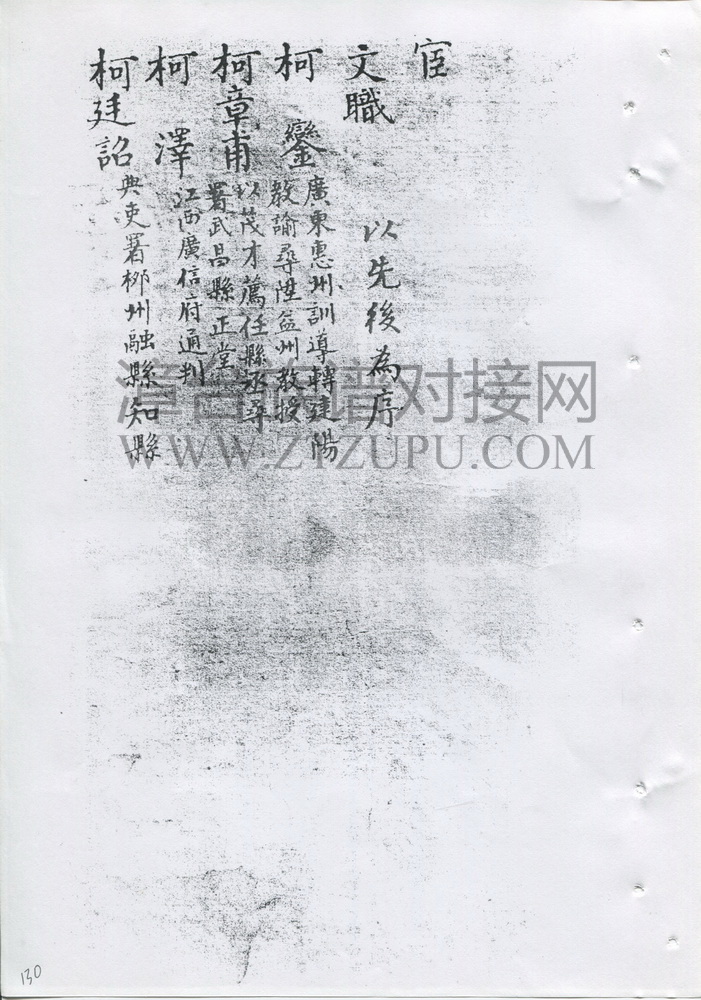 宦
文職 以先後為序
柯鑾 廣東惠州訓導轉建陽
教諭尋陞益州教授
柯章甫 以茂才薦任縣丞尋
署武昌縣正堂
柯澤 江西廣信府通判
柯廷詔 典吏署柳州融縣知縣
漳台族谱对接网
WWW.ZTZUPU.COM
130